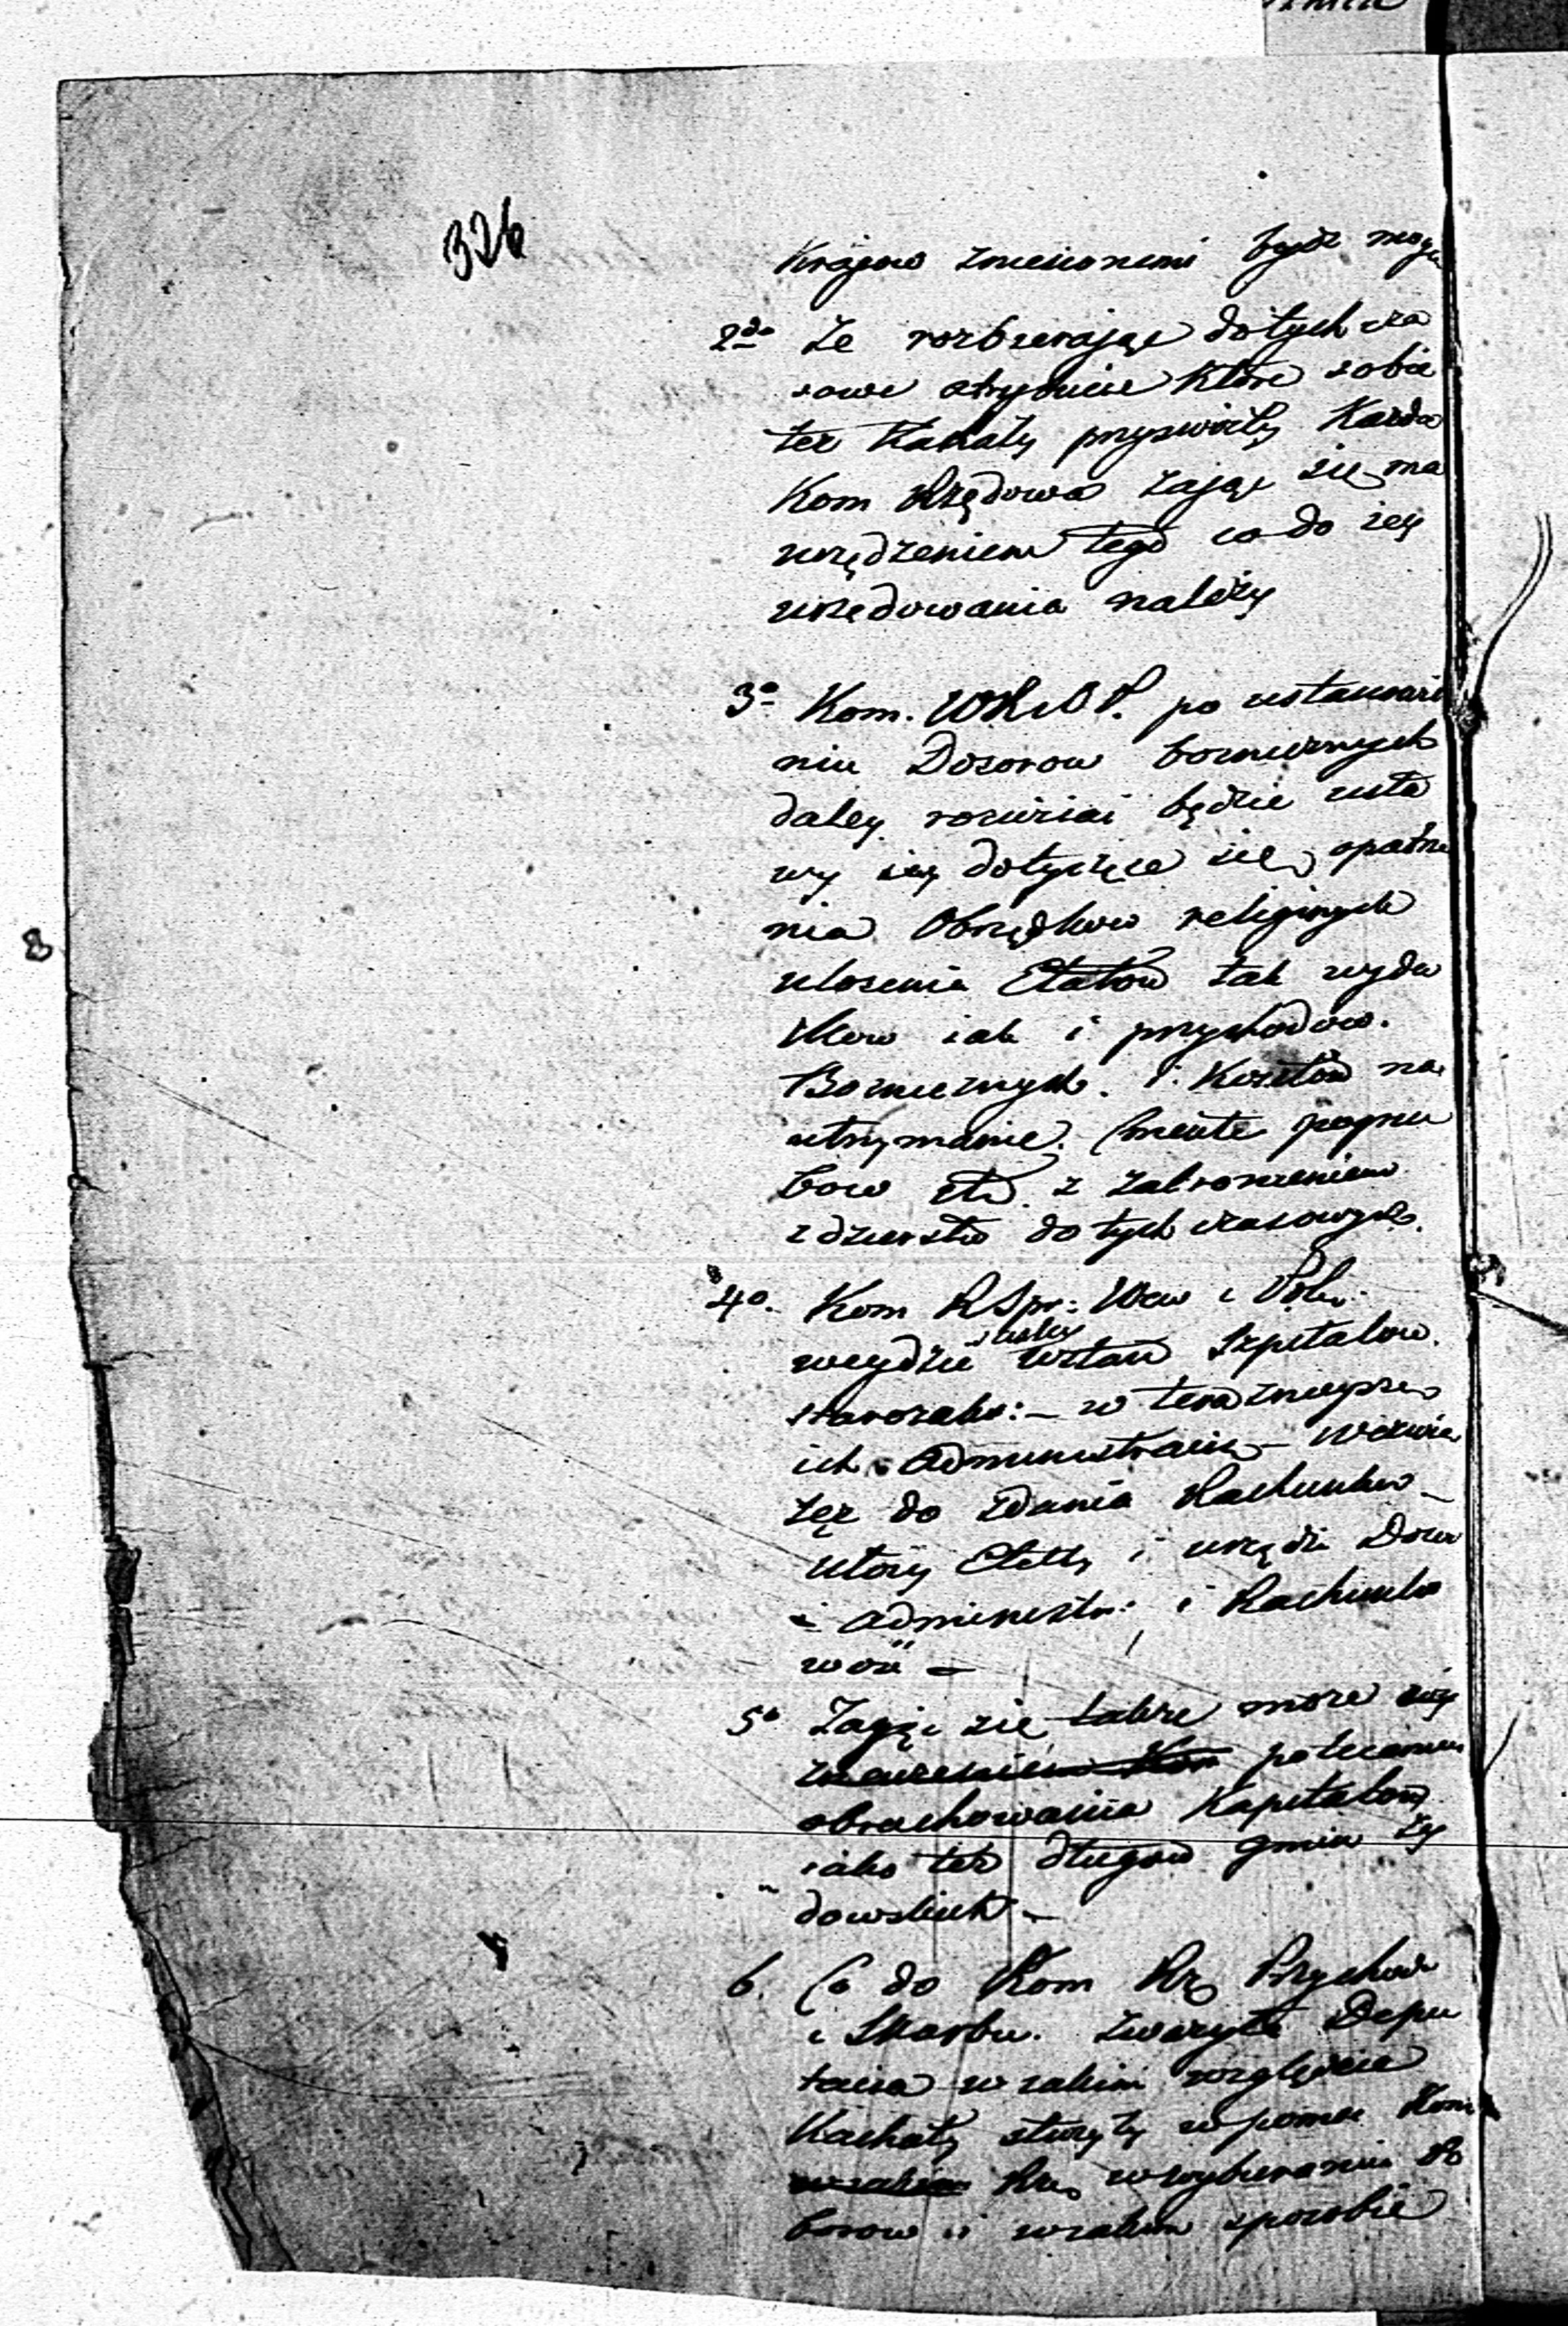 326
Krajowo zniesionemi bydź mogą
2do Że rozbierając dotych cza
sowe atrybucie które sobie
też Kahały przyswoiły Każda
Kom Rządowa zająć się ma
urządzeniem tego co do iey
urzędowania należy
3o Kom. WR i OP. po ustanowie
niu Dozorow boznicznych
daley rozwiiać będzie usta
wy iey dotyczące się opatrze
nia Obrządkow religiynych
ułożenia Etatow tak wydat
kow iak i przychodow.
Boznicznych. i Kosztow na
utrzymanie. Cmenta pogrze
bow etc. z zabronieniem
zdzierstw dotych czasowych.
4o. Kom R Spr: Wew i Pol.
weydzie w stan Szpitalow
starozak: – w teraznieysze
ich administracie –
do zdania Rachunkow –
ułoży Etaty i urządzi Dozor
i administr: i Rachunko
wość –
5o Zająć się także może iey
poleceniem
obrachowania Kapitałow
iako też długow gmin Ży
dowskich –
6. Co do Kom Rz Przychod
i Skarbu. zważyła Depu
tacia w iakim względzie
Kachały służyły w pomoc Kom
Rz w wybieraniu Po
borow i w iakim sposobie